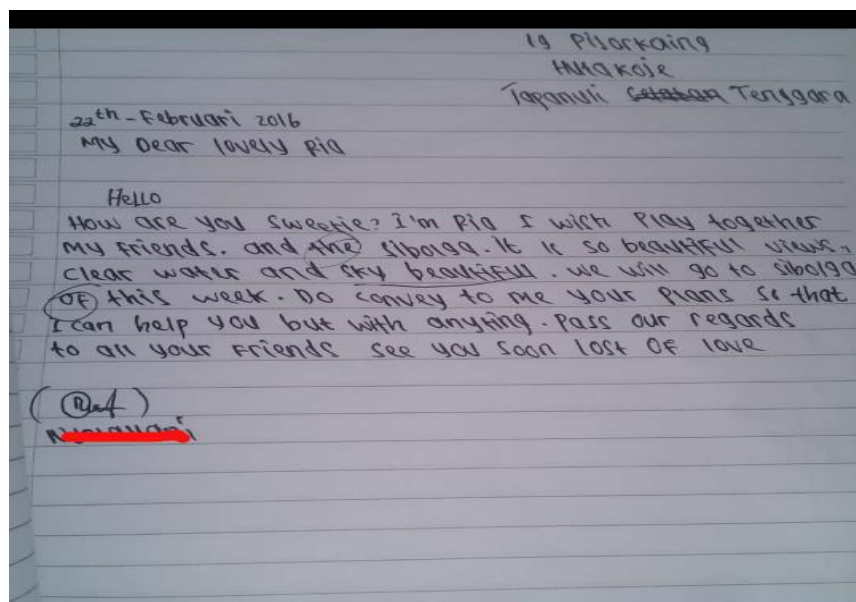 19 Pijorkoing
Hutakoje
Tapanuli Tenggara
22th - Februari 2016
My Dear lovely pia
Hello
How are you sweetie? I'm pia I wish play together
my friends. and the sibolga. It is so beautiful views,
clear water and sky beautiful. we will go to sibolga
OF this week. Do convey to me your plans so that
I can help you but with anyting. Pass our regards
to all your friends see you soon lost OF love